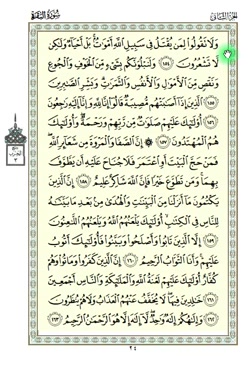 الجزء الثاني
سورة البقرة
ولا تقولوا لمن يقتل في سبيل الله أموات بل أحياء ولكن
لا تشعرون ١٥٤ ولنبلونكم بشيء من الخوف والجوع
ونقص من الأموال والأنفس والثمرات وبشر الصابرين
١٥٥ الذين إذا أصابتهم مصيبة قالوا إنا لله وإنا إليه راجعون
١٥٦ أولئك عليهم صلوات من ربهم ورحمة وأولئك
هم المهتدون ١٥٧ إن الصفا والمروة من شعائر الله
فمن حج البيت أو اعتمر فلا جناح عليه أن يطوف
بهما ومن تطوع خيرا فإن الله شاكر عليم ١٥٨ إن الذين
يكتمون ما أنزلنا من البينات والهدى من بعد ما بيناه
للناس في الكتاب أولئك يلعنهم الله ويلعنهم اللاعنون
١٥٩ إلا الذين تابوا وأصلحوا وبينوا فأولئك أتوب
عليهم وأنا التواب الرحيم ١٦٠ إن الذين كفروا وماتوا وهم
كفار أولئك عليهم لعنة الله والملائكة والناس أجمعين
١٦١ خالدين فيها لا يخفف عنهم العذاب ولا هم ينظرون
١٦٢ وإلهكم إله واحد لا إله إلا هو الرحمن الرحيم ١٦٣
٢٤